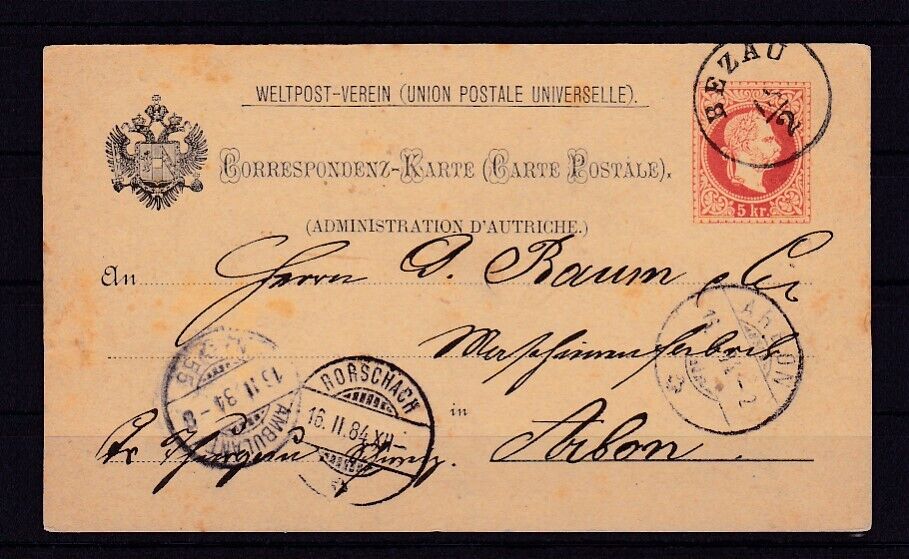 WELTPOST-VEREIN (UNION POSTALE UNIVERSELLE).
CORRESPONDENZ-KARTE (CARTE POSTALE),
(ADMINISTRATION D'AUTRICHE.)
BEZAU
5 kr.
An Herrn D. Raum & Cie
Maschinenfabrik
in Arbon
Ct. Thurgau Schweiz
AMBULANT
15 II 84 - 8
RORSCHACH
16. II. 84 XII-
ARBON